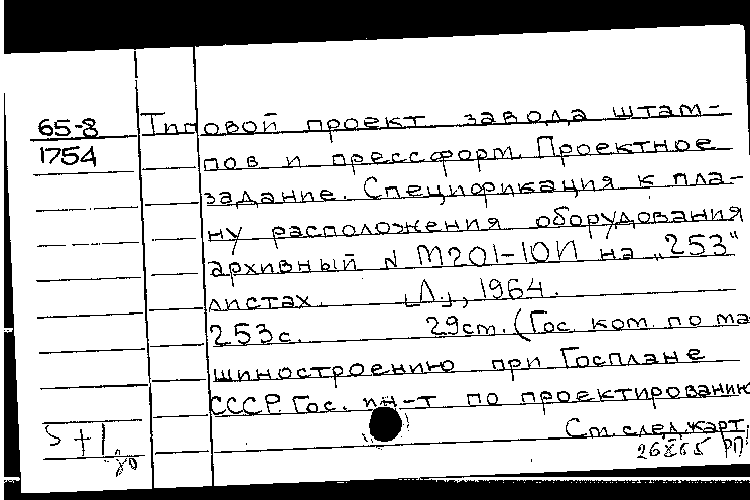 65-8 Типовой проект завода штам-
1754 пов и прессформ. Проектное
задание. Спецификация к пла-
ну расположения оборудования
архивный N М201-10И на „253“
листах. [Л.], 1964.
253с. 29см. (Гос. ком. по ма-
шиностроению при Госплане
СССР. Гос. ин-т по проектированию
См. след. карт.
5+1